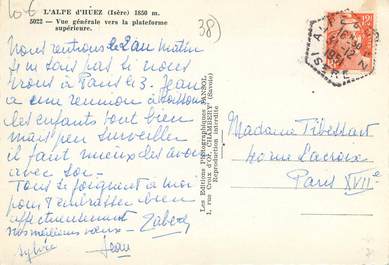 10 €
L'ALPE d'HUEZ (Isère) 1850 m.
5022 — Vue générale vers la plateforme
supérieure.
38)
Nous rentrons le 2 au matin
je ne sais pas si nous
irons à Paris le 3. Jean
a une réunion à
les enfants tout bien
mais peu surveiller
il faut mieux les avoir
avec soi.
Tous se joignent à moi
pour t'embrasser bien
affectueusement
nos meilleurs vœux
Sylvie Jean
Les Editions Photographiques FANSOL
1, rue Croix d'Or, CHAMBÉRY (Savoie)
Reproduction interdite
ISERE
Madame Tibessart
40 rue Lacroix
Paris XVIIe